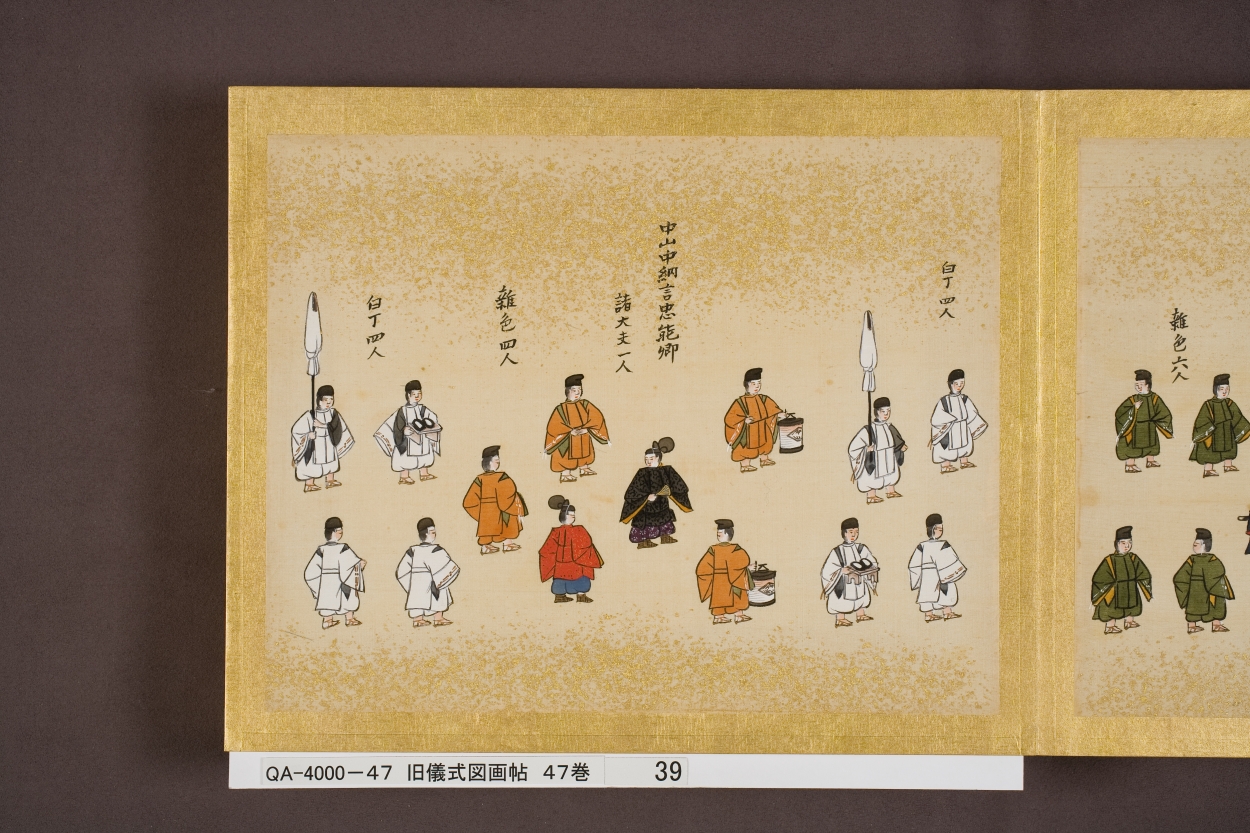 雑色六人
白丁四人
中山中納言忠能卿
諸大夫一人
雑色四人
白丁四人
QA-4000-47 旧儀式図画帖 47巻 39